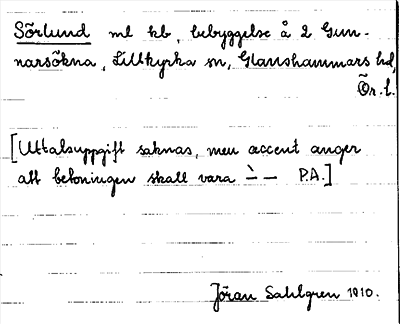 Sörlund ml hb, bebyggelse å 2 Gun-
narsökna, Lillkyrka sn, Glanshammars hd,
Ör. l.
[Uttalsuppgift saknas, men accent anger
att betoningen skall vara ⏑̀ – P.A.]
Jöran Sahlgren 1910.